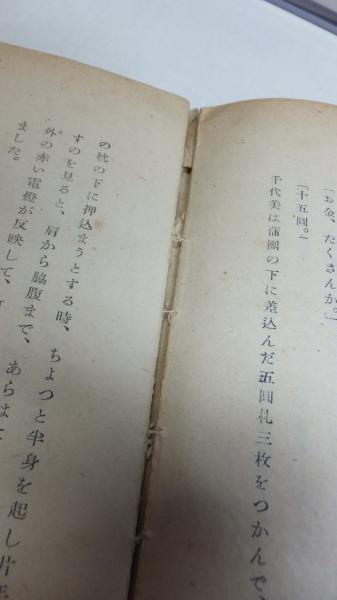 「お金、たくさんか。」
「十五圓。」
千代美は蒲團の下に差込んだ五圓札三枚をつかんで、
の枕の下に押込まうとする時、ちよつと半身を起し片
すのを見ると、肩から脇腹まで、あらは
外の赤い電燈が反映して、
ました。